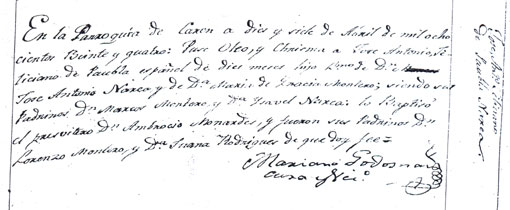 En la Parroquia de Caren a dies y siete de Abril de mil ocho
cientos Beinte y quatro: Puse Oleo, y Chrisma a Jose Antonio, Fe-
liciano de Puebla español de dies meses hijo legmo. de Dn.
Jose Antonio Narea y de Da. Maria de Gracia Montero; siendo sus
Padrinos Dn. Marcos Montero, y Dña Isavel Narea: lo Baptizó
el presvitero Dn. Ambrocio Monardes, y fueron sus Padrinos Dn
Lorenzo Montero, y Dña Juana Rodrigues de que doy fee=
Mariano Godomar
cura y Vico.
Jose Anto. Feliciano
de Puebla Narea.